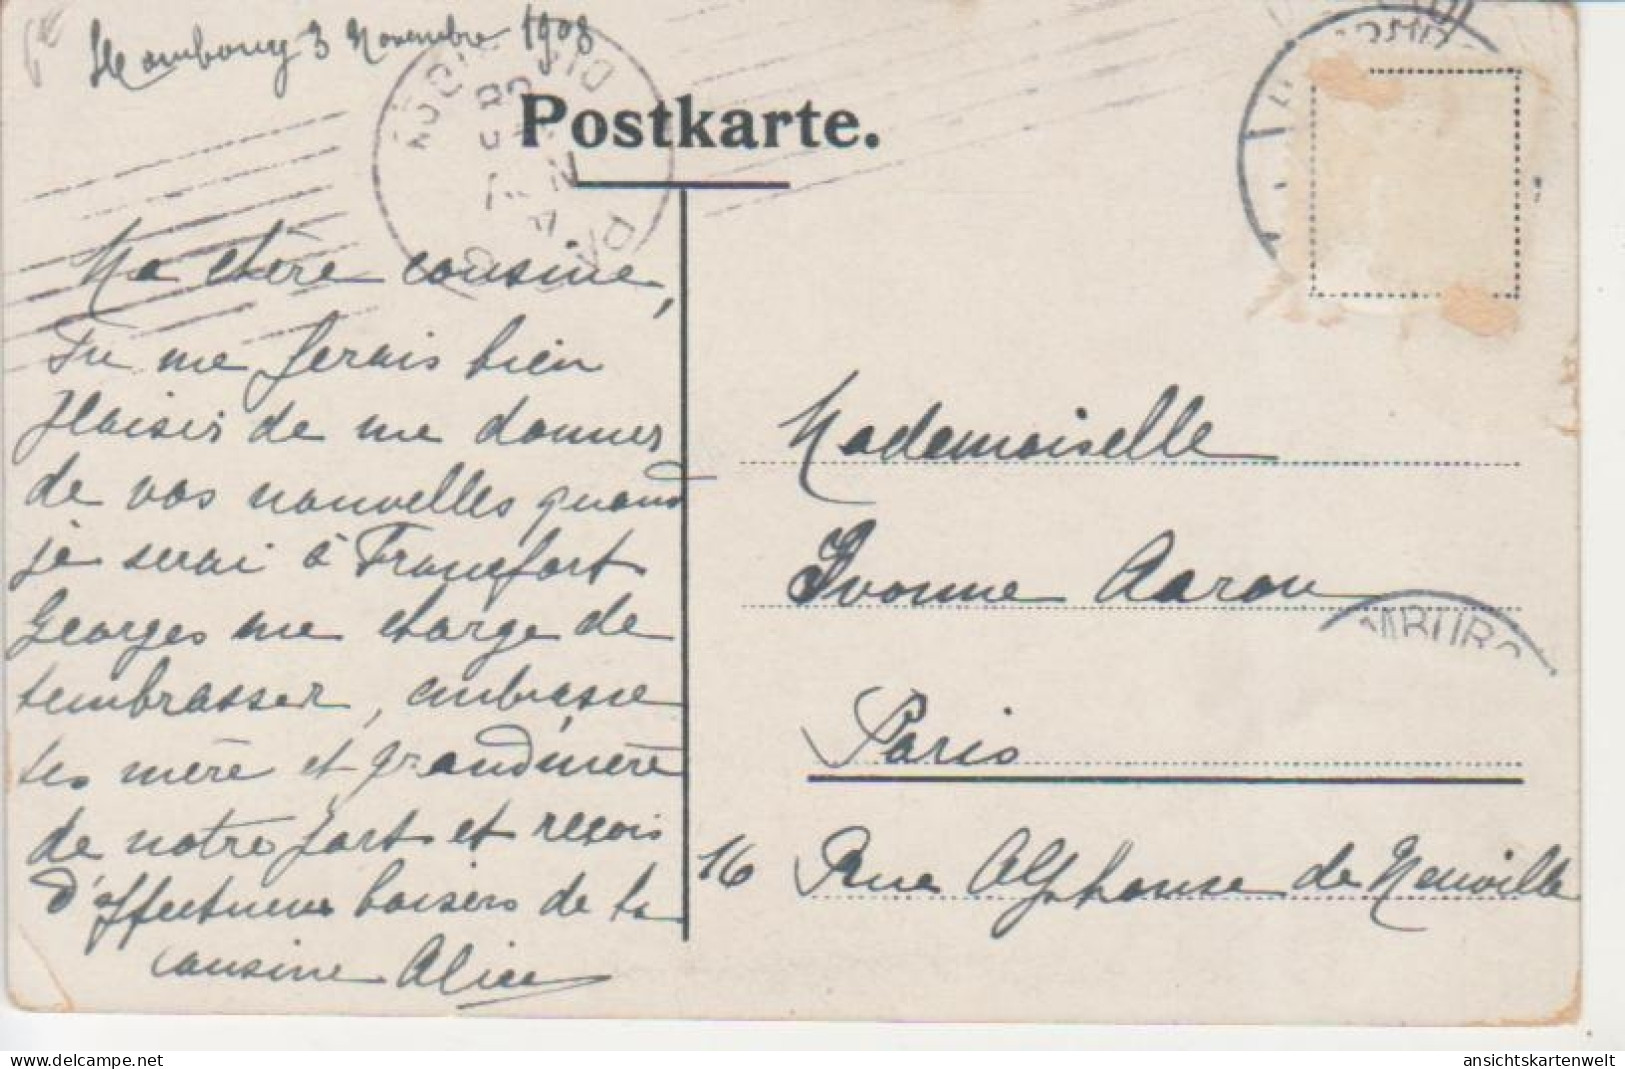 Hambourg 3 Novembre 1908
Postkarte.
Ma chère cousine,
Tu me ferais bien
plaisir de me donner
de vos nouvelles quand
je serai à Francfort
Georges me charge de
t'embrasser, embrasse
tes mère et grand'mère
de notre part et reçois
d'affectueux baisers de ta
cousine Alice
Mademoiselle
Yvonne Aaron
Paris
16 Rue Alphonse de Neuville
MBURG
ansichtskartenwelt.com
ansichtskartenwelt